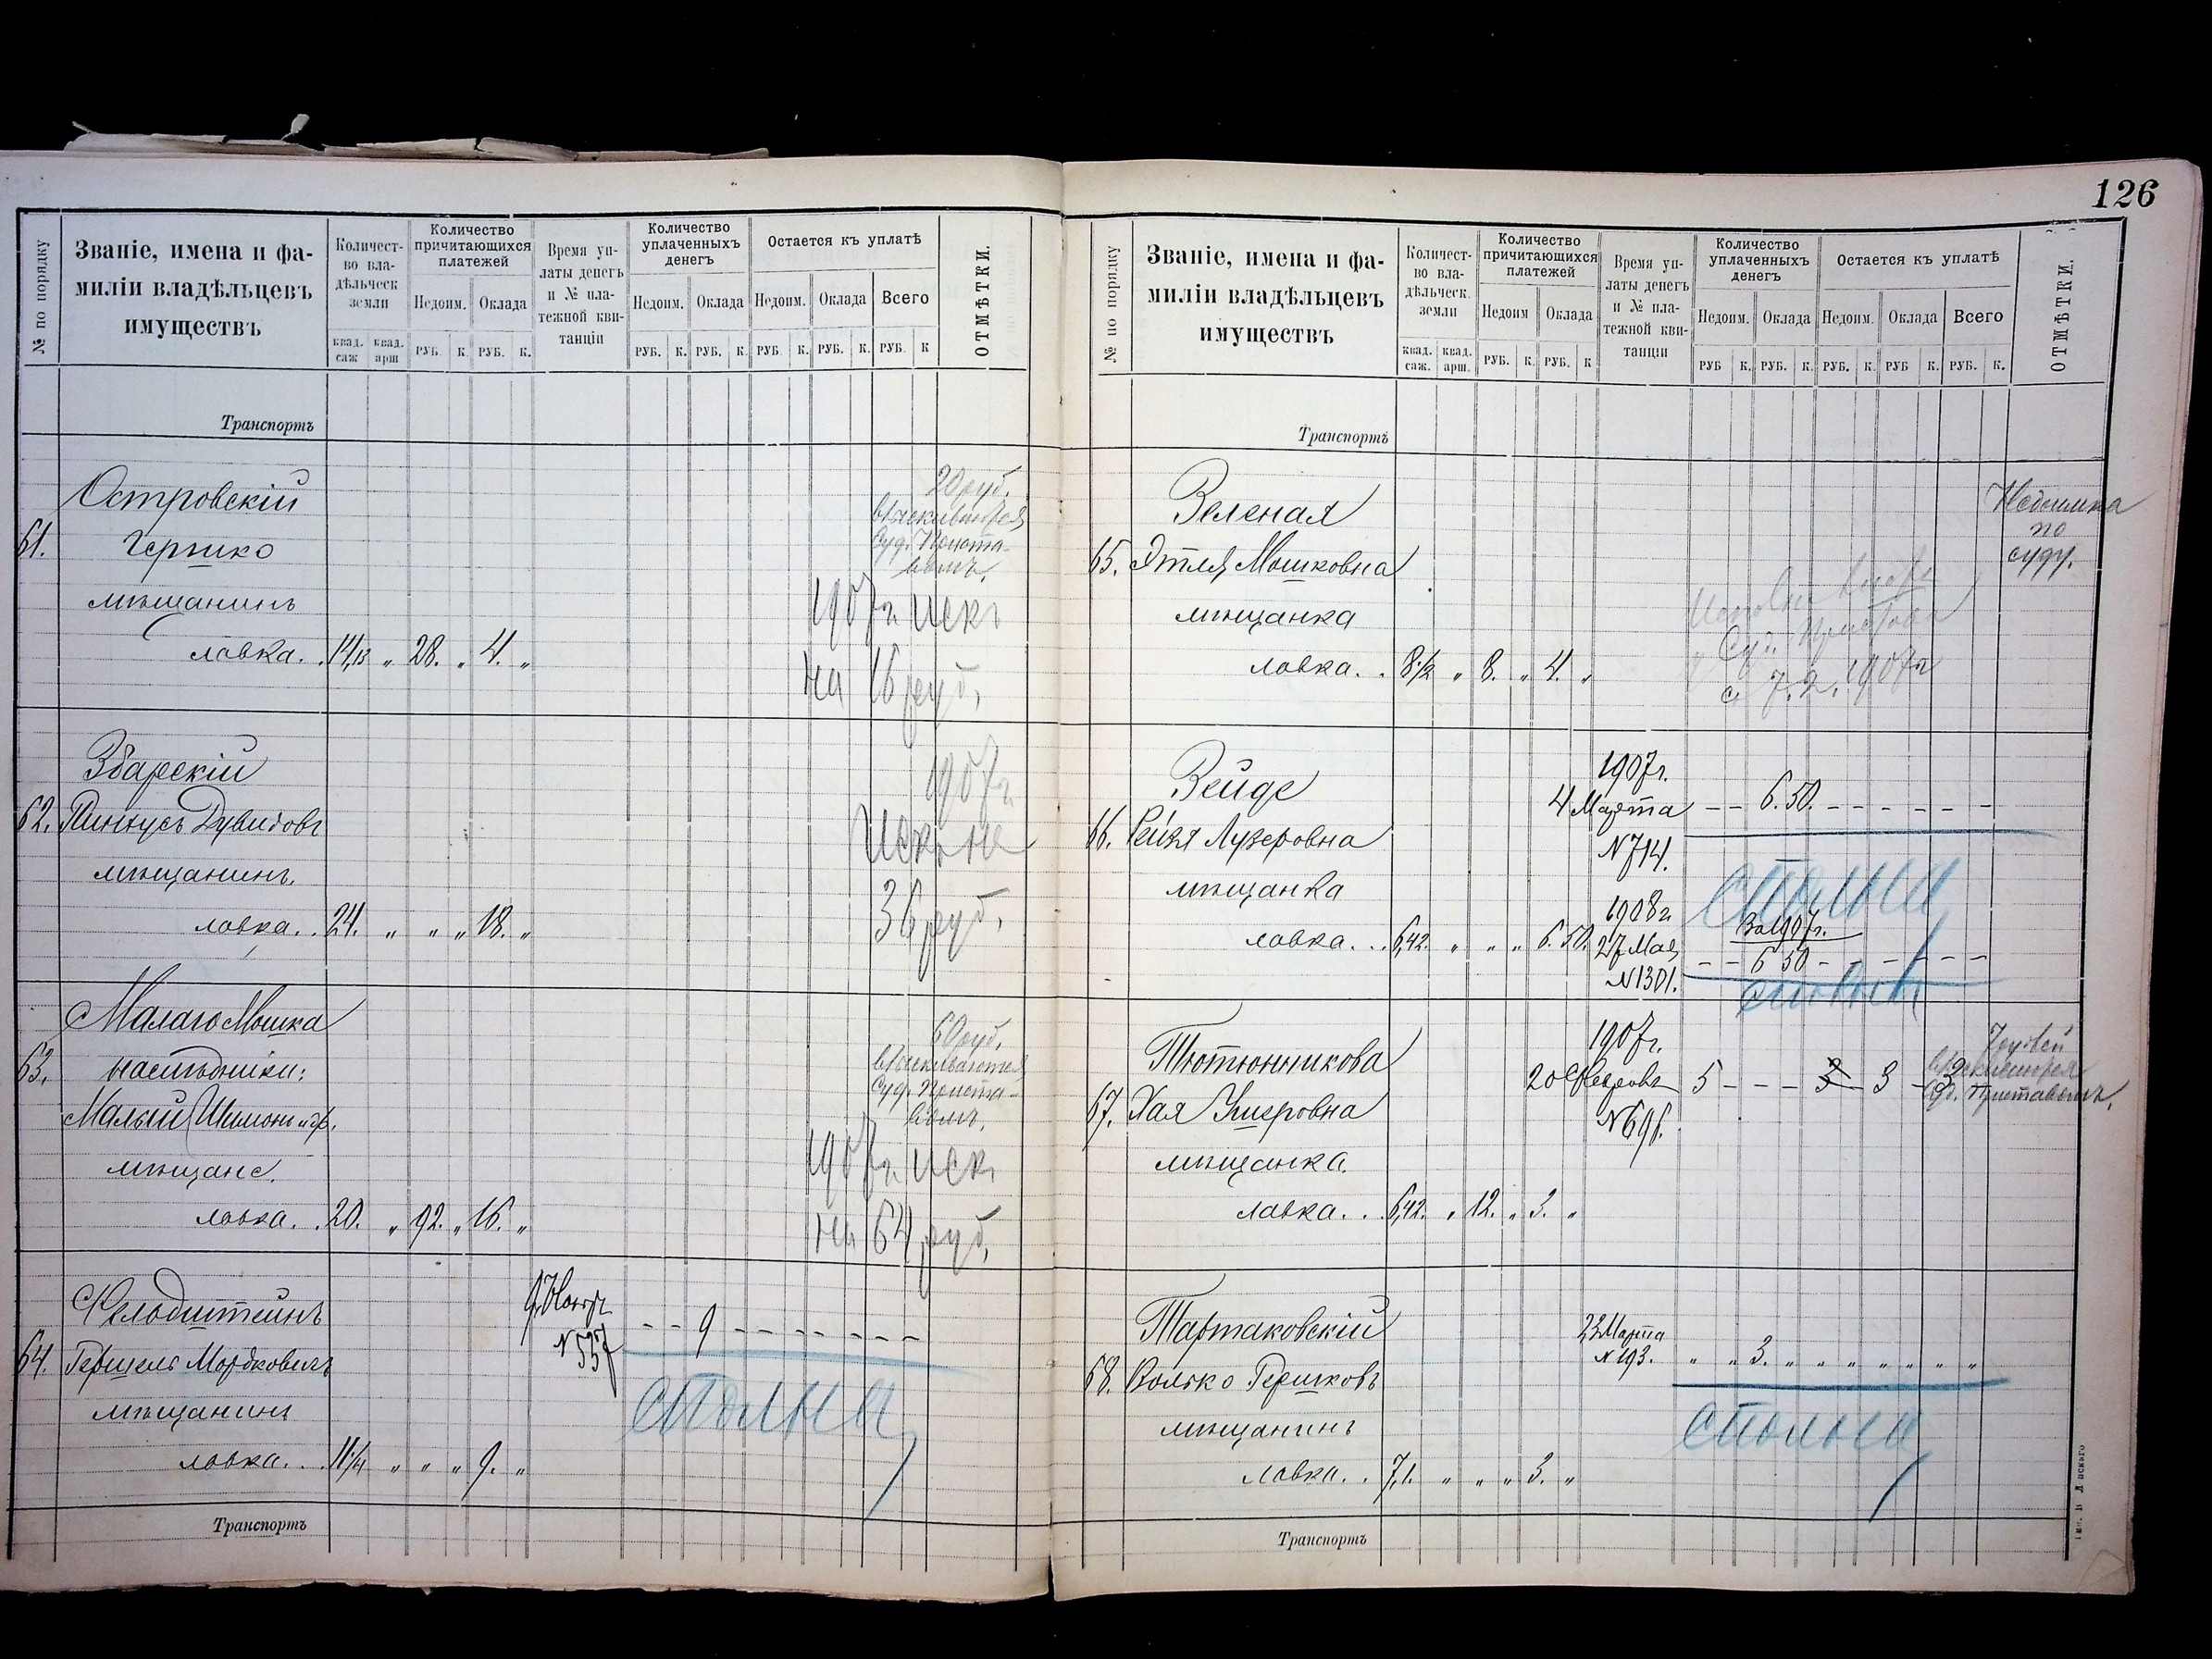 126
№ по порядку
Званіе, имена и фа-
миліи владѣльцевъ
имуществъ
Количест-
во вла-
дѣльческ
земли
квад. саж
квад. арш
Количество
причитающихся
платежей
Недоим.
Оклада
РУБ. К. РУБ. К.
Время уп-
латы денегъ
и № пла-
тежной кви-
танціи
Количество
уплаченныхъ
денегъ
Недоим.
Оклада
РУБ. К. РУБ. К.
Остается къ уплатѣ
Недоим.
Оклада
Всего
РУБ. К. РУБ. К. РУБ. К
ОТМѢТКИ.
Транспортъ
Островскій
61. Гершко
мѣщанинъ
лавка. . 14,13 „ 28. „ 4. „
20 руб.
взыскиваются
Суд. Приста-
вомъ.
1907г искъ
на 16 руб.
Збарскій
62. Пинкусъ Дувидовъ
мѣщанинъ.
лавка. . 24. „ „ „ 18. „
1907г
Искъ на
36 руб.
Малаго Мошка
63. наслѣдники:
Малый Шимонъ и др.
мѣщане.
лавка. . 20. „ 92. „ 16. „
60 руб.
взыскиваются
Суд. Приста-
вомъ.
1907г искъ
на 64 руб.
Фельдштейнъ
64. Гершель Мордковичъ
мѣщанинъ
лавка. . . 11¼ „ „ „ 9. „
9 Ноября
N 557
– – 9 – – – – – – –
сполна
Транспортъ
№ по порядку
Званіе, имена и фа-
миліи владѣльцевъ
имуществъ
Количест-
во вла-
дѣльческ.
земли
квад. саж.
квад. арш.
Количество
причитающихся
платежей
Недоим
Оклада
РУБ. К. РУБ. К
Время уп-
латы денегъ
и № пла-
тежной кви-
танціи
Количество
уплаченныхъ
денегъ
Недоим.
Оклада
РУБ К. РУБ. К.
Остается къ уплатѣ
Недоим.
Оклада
Всего
РУБ. К. РУБ К. РУБ. К.
ОТМѢТКИ.
Транспортъ
Зеленая
65. Этля Мошковна
мѣщанка
лавка. . 8½ „ 8. „ 4. „
Суд. Пристава
с 7. 2. 1907г
Недоимка
по
суду.
Вейде
66. Рейзя Лузеровна
мѣщанка
лавка. . . 6,42. „ „ „ 6. 50.
1907г.
4 Марта – – 6. 50. – – – – – –
N 714.
сполна
1908г
27 Мая
N 1301.
За 1907г.
– – 6 50 – – – – – –
сполна
Тютюнникова
67. Хая Ушеровна
мѣщанка.
лавка. . . 6,42. „ 12. „ 3. „
1907г.
20 Февраля 5 – – – 3 – 3 – 2
N 696.
взыскиваются
Суд. Приставомъ.
Тартаковскій
68. Волько Гершковъ
мѣщанинъ
лавка. . 7,1. „ „ „ 3. „
22 Марта
N 193. „ „ 3. „ „ „ „ „ „ „
сполна
Транспортъ